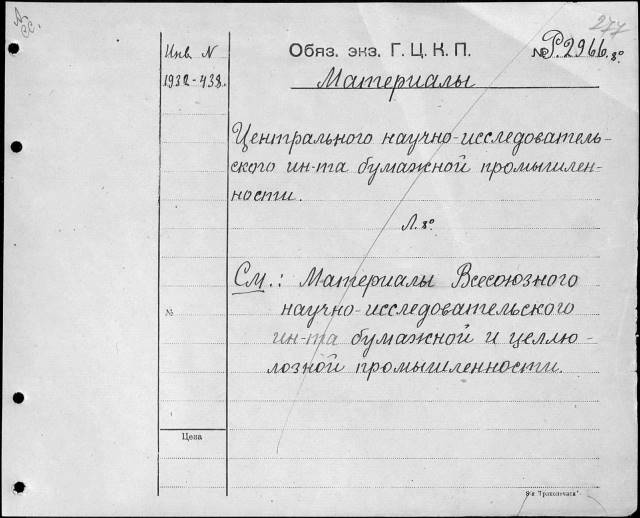 277
Инв. N
1932-438.
Обяз. экз. Г. Ц. К. П.
№ Р.2966. 8°
Материалы
Центрального научно-исследователь-
ского ин-та бумажной промышлен-
ности.
Л. 8°
См.: Материалы Всесоюзного
научно-исследовательского
ин-та бумажной и целлю-
лозной промышленности.
№
Цена